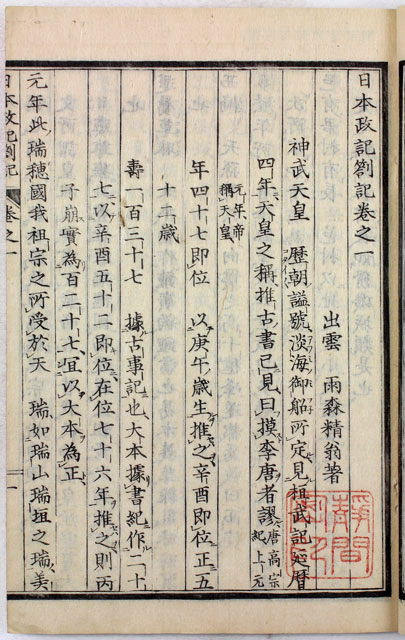 日本政記劄記卷之一
出雲 雨森精翁著
神武天皇 歷朝謚號淡海御船所定見桓武記延暦
四年天皇之稱推古書已見曰摸李唐者謬唐高宗紀上元
元年帝稱天皇
年四十七即位 以庚午歲生推之辛酉即位正五
十二歲
壽一百三十七 據古事記也大本據書紀作一二十
七以辛酉五十二即位在位七十六年推之則丙
子崩實為百二十七宜以大本為正
元年此瑞穗國我祖宗之所受於天 瑞如瑞山瑞垣之瑞美
日本政記劄記 卷之一 一